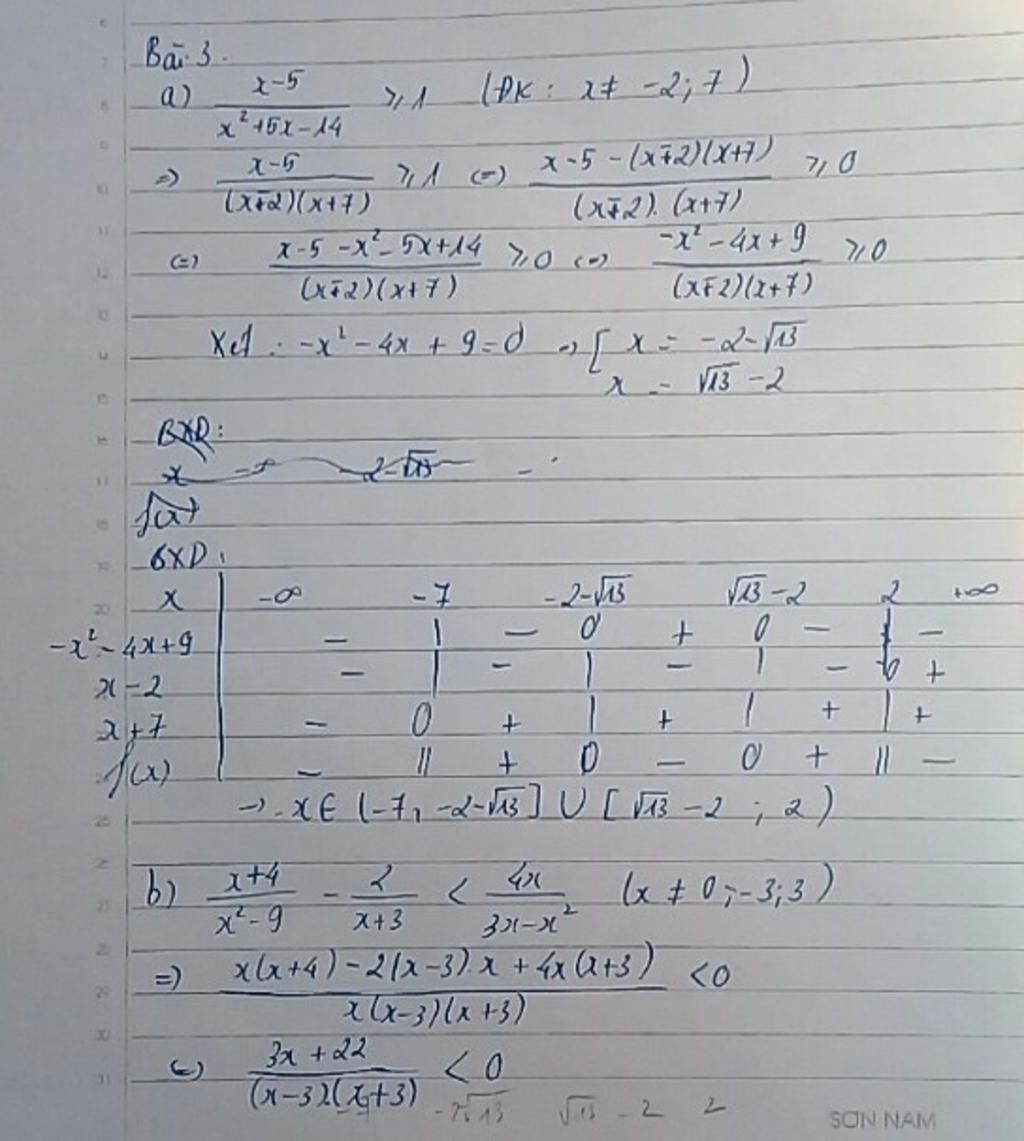 Bài 3.
a) (x-5)/(x²+5x-14) ⩾ 1 (ĐK: x ≠ -2; 7)
=> (x-5)/((x-2)(x+7)) ⩾ 1 (=) (x-5-(x-2)(x+7))/((x-2).(x+7)) ⩾ 0
(=) (x-5-x²-5x+14)/((x-2)(x+7)) ⩾ 0 (=) (-x²-4x+9)/((x-2)(x+7)) ⩾ 0
Xét: -x²-4x+9=0 => [ x = -2-√13
x = √13-2
BXD:
x -∞ -2-√13
f(x)
BXD:
x -∞ -7 -2-√13 √13-2 2 +∞
-x²-4x+9 - | - 0 + 0 - | -
x-2 - | - | - | - 0 +
x+7 - 0 + | + | + | +
f(x) - || + 0 - 0 + || -
-> x ∈ (-7; -2-√13] ∪ [√13-2; 2)
b) (x+4)/(x²-9) - 2/(x+3) < 4x/(3x-x²) (x ≠ 0; -3; 3)
=) (x(x+4)-2(x-3).x+4x(x+3))/(x(x-3)(x+3)) < 0
(=) (3x+22)/((x-3)(x+3)) < 0
-2√13 √13-2 2
SON NAM